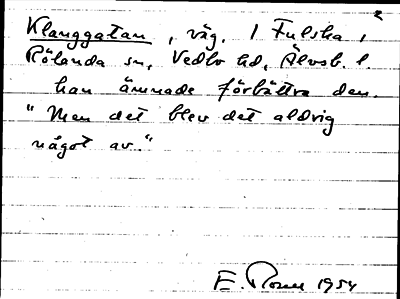 Klanggatan, väg, 1 Fulska,
Rölanda sn, Vedbo hd, Älvsb. l.
han ämnade förbättra den.
"Men det blev det aldrig
något av."
E. 1954